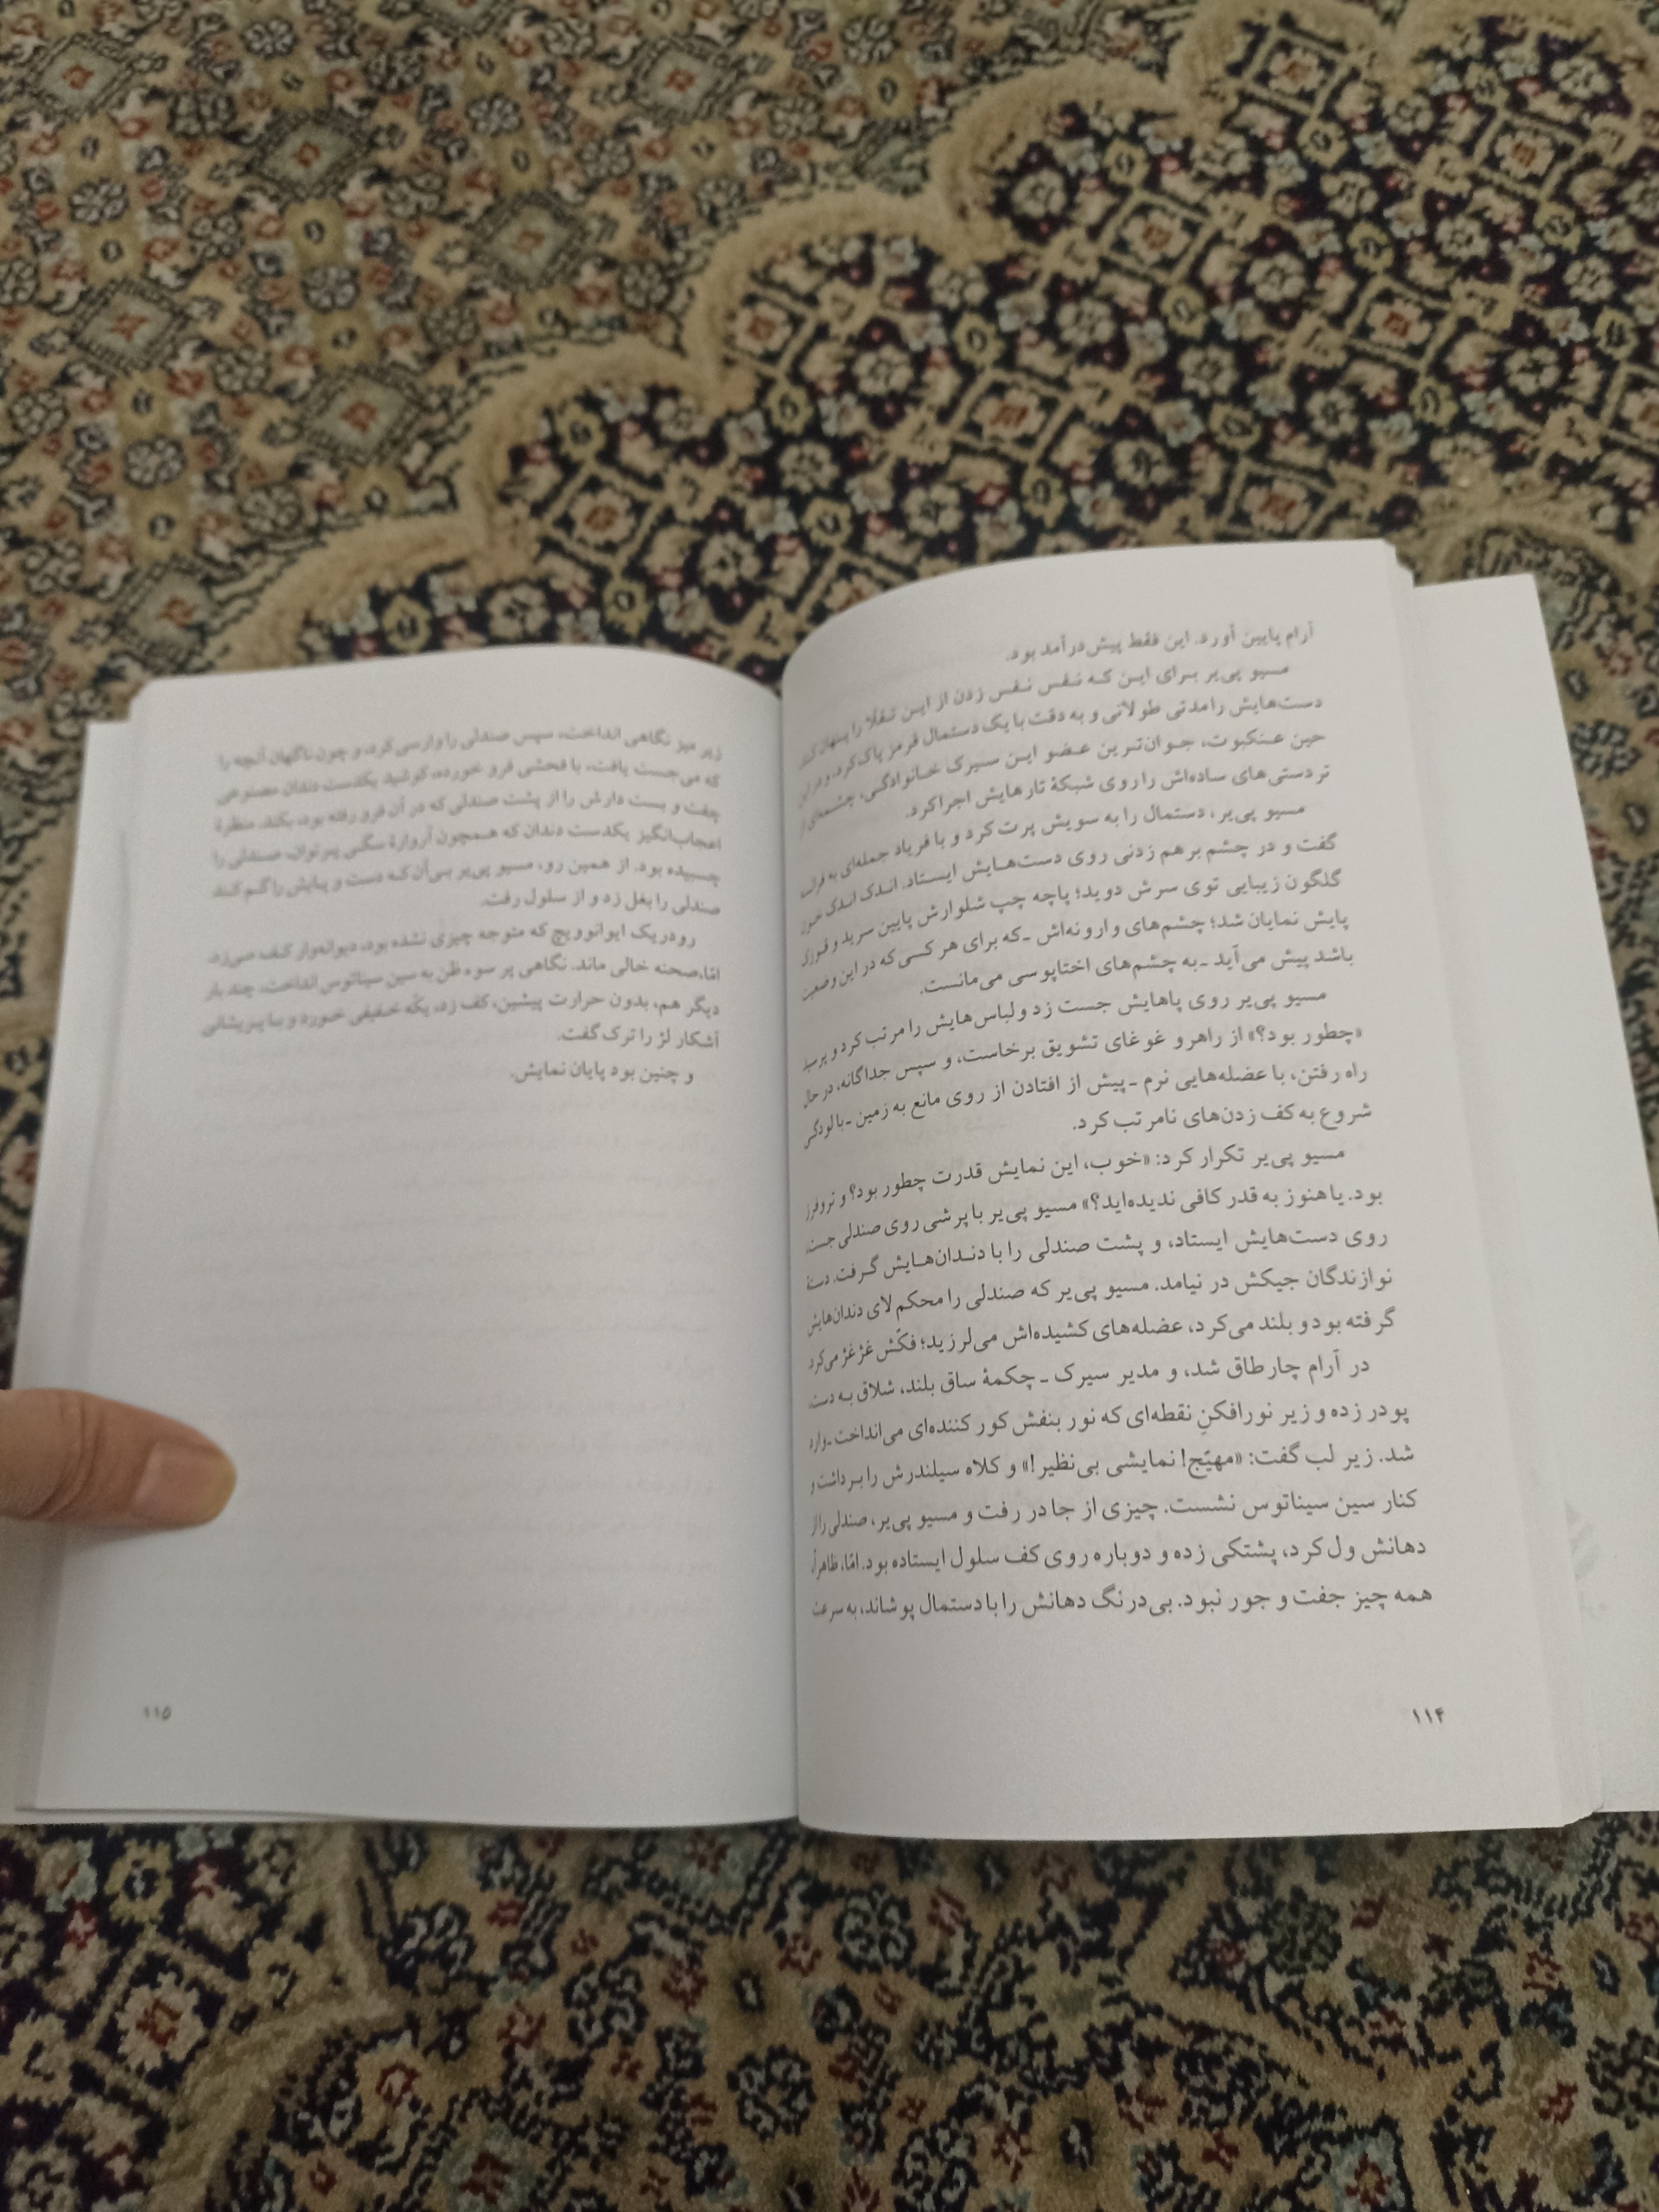 آرام پایین آورد. این فقط پیش‌درآمد بود.
مسیو پی‌یر برای این که نفس نفس زدن از این تقلّا را پنهان کند،
دست‌هایش را مدتی طولانی و به دقت با یک دستمال قرمز پاک کرد، و در این
حین عنکبوت، جوان‌ترین عضو این سیرک خانوادگی، چشمه‌ای از
تردستی‌های ساده‌اش را روی شبکهٔ تارهایش اجرا کرد.
مسیو پی‌یر، دستمال را به سویش پرت کرد و با فریاد جمله‌ای به فرانسه
گفت و در چشم بر هم زدنی روی دست‌هایش ایستاد. اندک اندک خون
گلگون زیبایی توی سرش دوید؛ پاچه چپ شلوارش پایین سرید و قوزک
پایش نمایان شد؛ چشم‌های وارونه‌اش ـ که برای هر کسی که در این وضعیت
باشد پیش می‌آید ـ به چشم‌های اختاپوسی می‌مانست.
مسیو پی‌یر روی پاهایش جست زد و لباس‌هایش را مرتب کرد و پرسید
«چطور بود؟» از راهرو غوغای تشویق برخاست، و سپس جداگانه، در حال
راه رفتن، با عضله‌هایی نرم ـ پیش از افتادن از روی مانع به زمین ـ با لودگی
شروع به کف زدن‌های نامرتب کرد.
مسیو پی‌یر تکرار کرد: «خوب، این نمایش قدرت چطور بود؟ و تروفرز
بود. یا هنوز به قدر کافی ندیده‌اید؟» مسیو پی‌یر با پرشی روی صندلی جست،
روی دست‌هایش ایستاد، و پشت صندلی را با دندان‌هایش گرفت. دستهٔ
نوازندگان جیکش در نیامد. مسیو پی‌یر که صندلی را محکم لای دندان‌هایش
گرفته بود و بلند می‌کرد، عضله‌های کشیده‌اش می‌لرزید؛ فکّش غژغژ می‌کرد
در آرام چارطاق شد، و مدیر سیرک ـ چکمهٔ ساق بلند، شلاق به دست،
پودر زده و زیر نورافکنِ نقطه‌ای که نور بنفش کور کننده‌ای می‌انداخت ـ وارد
شد. زیر لب گفت: «مهیّج! نمایشی بی‌نظیر!» و کلاه سیلندرش را برداشت و
کنار سین سیناتوس نشست. چیزی از جا در رفت و مسیو پی‌یر، صندلی را از
دهانش ول کرد، پشتکی زده و دوباره روی کف سلول ایستاده بود. امّا، ظاهراً،
همه چیز جفت و جور نبود. بی‌درنگ دهانش را با دستمال پوشاند، به سرعت
۱۱۴
زیر میز نگاهی انداخت، سپس صندلی را وارسی کرد، و چون ناگهان آنچه را
که می‌جست یافت، با فحشی فرو خورده، کوشید یکدست دندان مصنوعی
چفت و بست دارش را از پشت صندلی که در آن فرو رفته بود، بکند. منظرهٔ
اعجاب‌انگیز یکدست دندان که همچون آروارهٔ سگی پرتوان، صندلی را
چسبیده بود. از همین رو، مسیو پی‌یر بی‌آن‌که دست و پایش را گم کند،
صندلی را بغل زد و از سلول رفت.
رودریک ایوانوویچ که متوجه چیزی نشده بود، دیوانه‌وار کف می‌زد.
امّا، صحنه خالی ماند. نگاهی پر سوء ظن به سین سیناتوس انداخت، چند بار
دیگر هم، بدون حرارت پیشین، کف زد، یکّه خفیفی خورد و با پریشانی
آشکار لژ را ترک گفت.
و چنین بود پایان نمایش.
۱۱۵